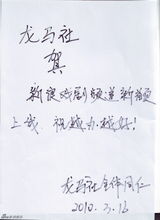 龙马社
贺
新浪戏剧频道新版
上线。祝越办越好!
龙马社全体同仁
2010.3.16